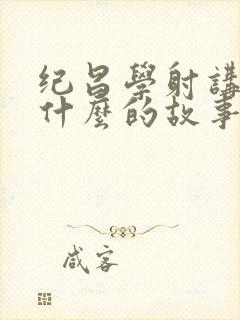 纪昌學射講
什麼的故事
咸客